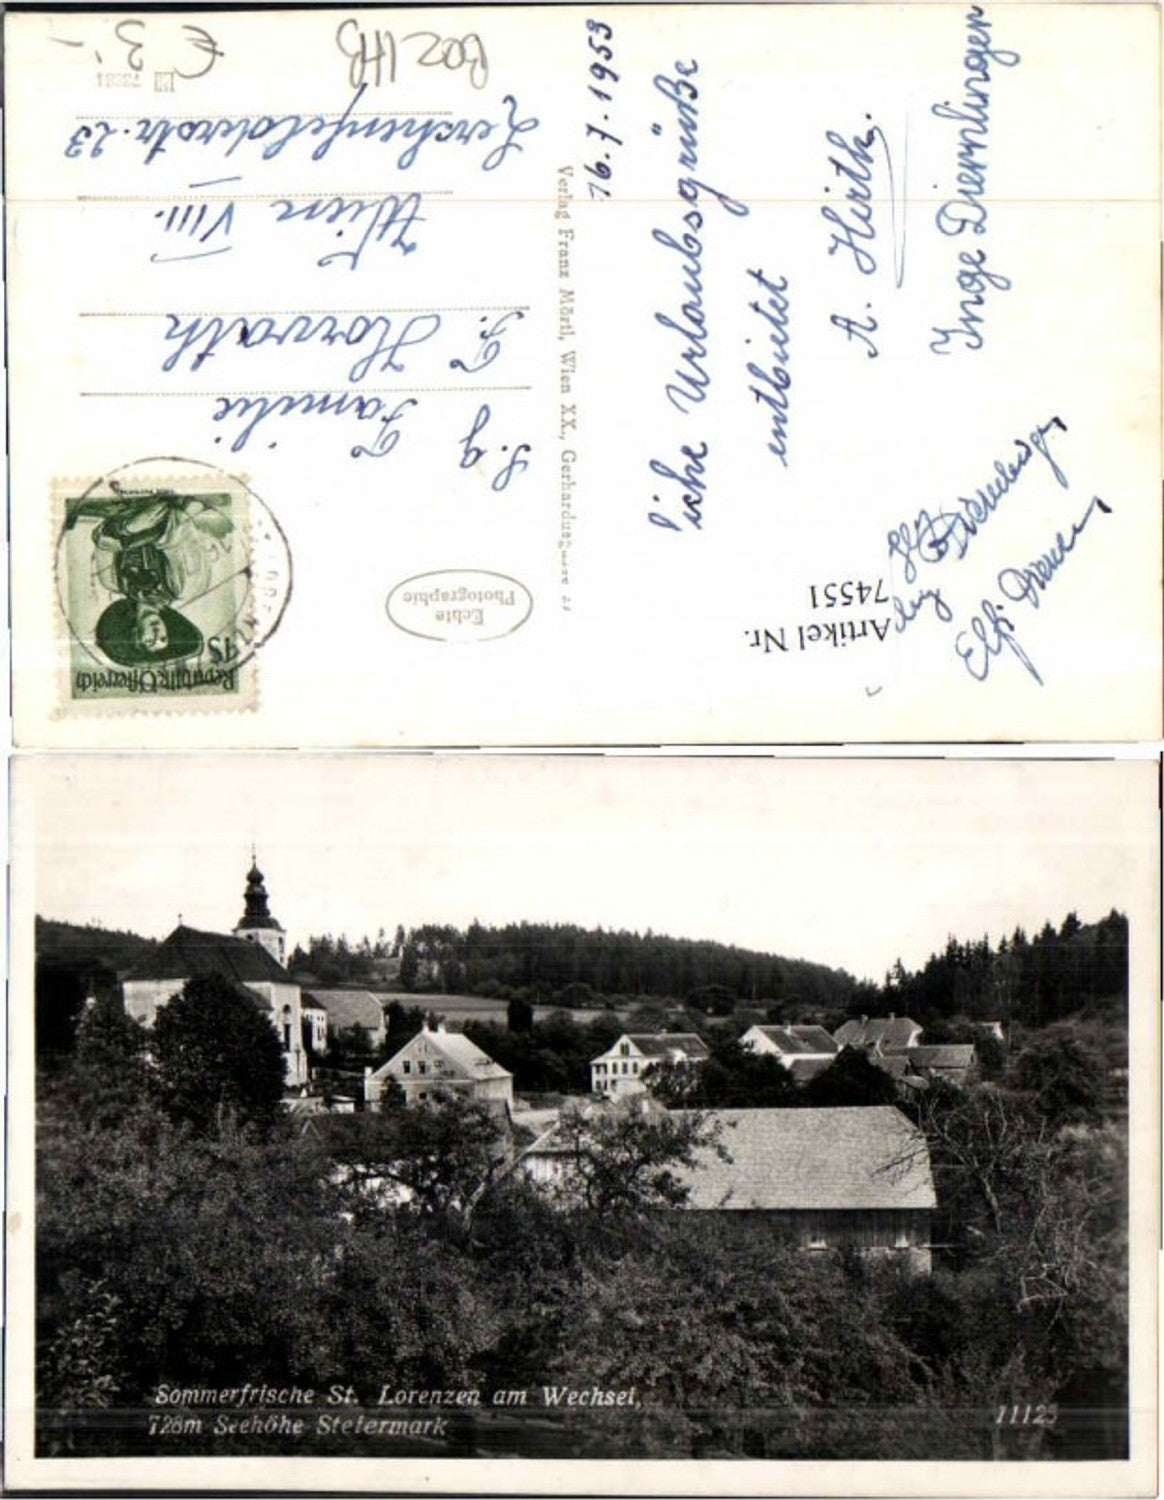 € 3'-
BOZ 1HB
16.7.1953
Urlaubsgrüße
entbietet
A. Hirth.
Inge
Elfi
S. g.
Familie
F. Horvath
Wien VIII.
Lerchenfelderstr. 23
Verlag Franz Mörtl, Wien XX., Gerhardusgasse
Echte
Photographie
Republik Österreich
1S
Artikel Nr.
74551
Sommerfrische St. Lorenzen am Wechsel,
728m Seehöhe Steiermark